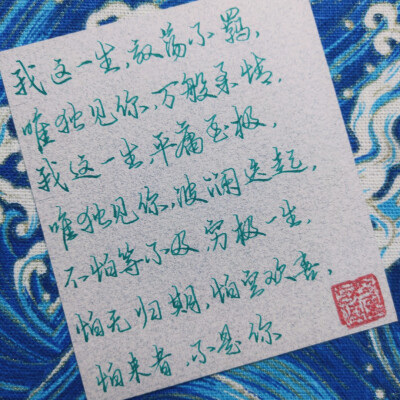 我这一生,放荡不羁,
唯独见你,万般柔情.
我这一生,平庸至极,
唯独见你,波澜迭起.
不怕等不及,穷极一生.
怕无归期,怕空欢喜,
怕来者,不是你